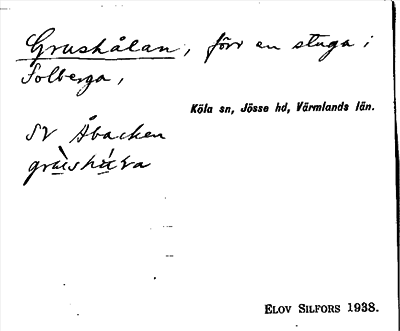 Grushålan, förr en stuga i
Solberga,
Köla sn, Jösse hd, Värmlands län.
SV Åbacken
Elov Silfors 1938.